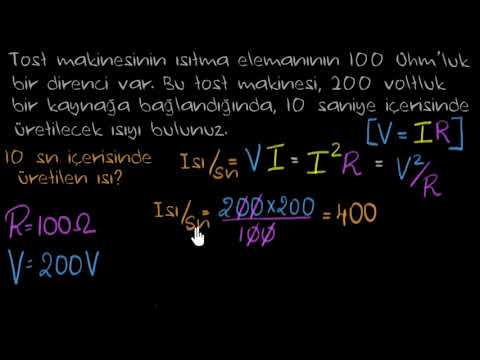 Tost makinesinin ısıtma elemanının 100 Ohm'luk
bir direnci var. Bu tost makinesi, 200 voltluk
bir kaynağa bağlandığında, 10 saniye içerisinde
üretilecek ısıyı bulunuz.
[V = IR]
10 sn içerisinde
üretilen ısı?
Isı/sn = VI = I²R = V²/R
Isı/sn = 200x200/100 = 400
R = 100Ω
V = 200V